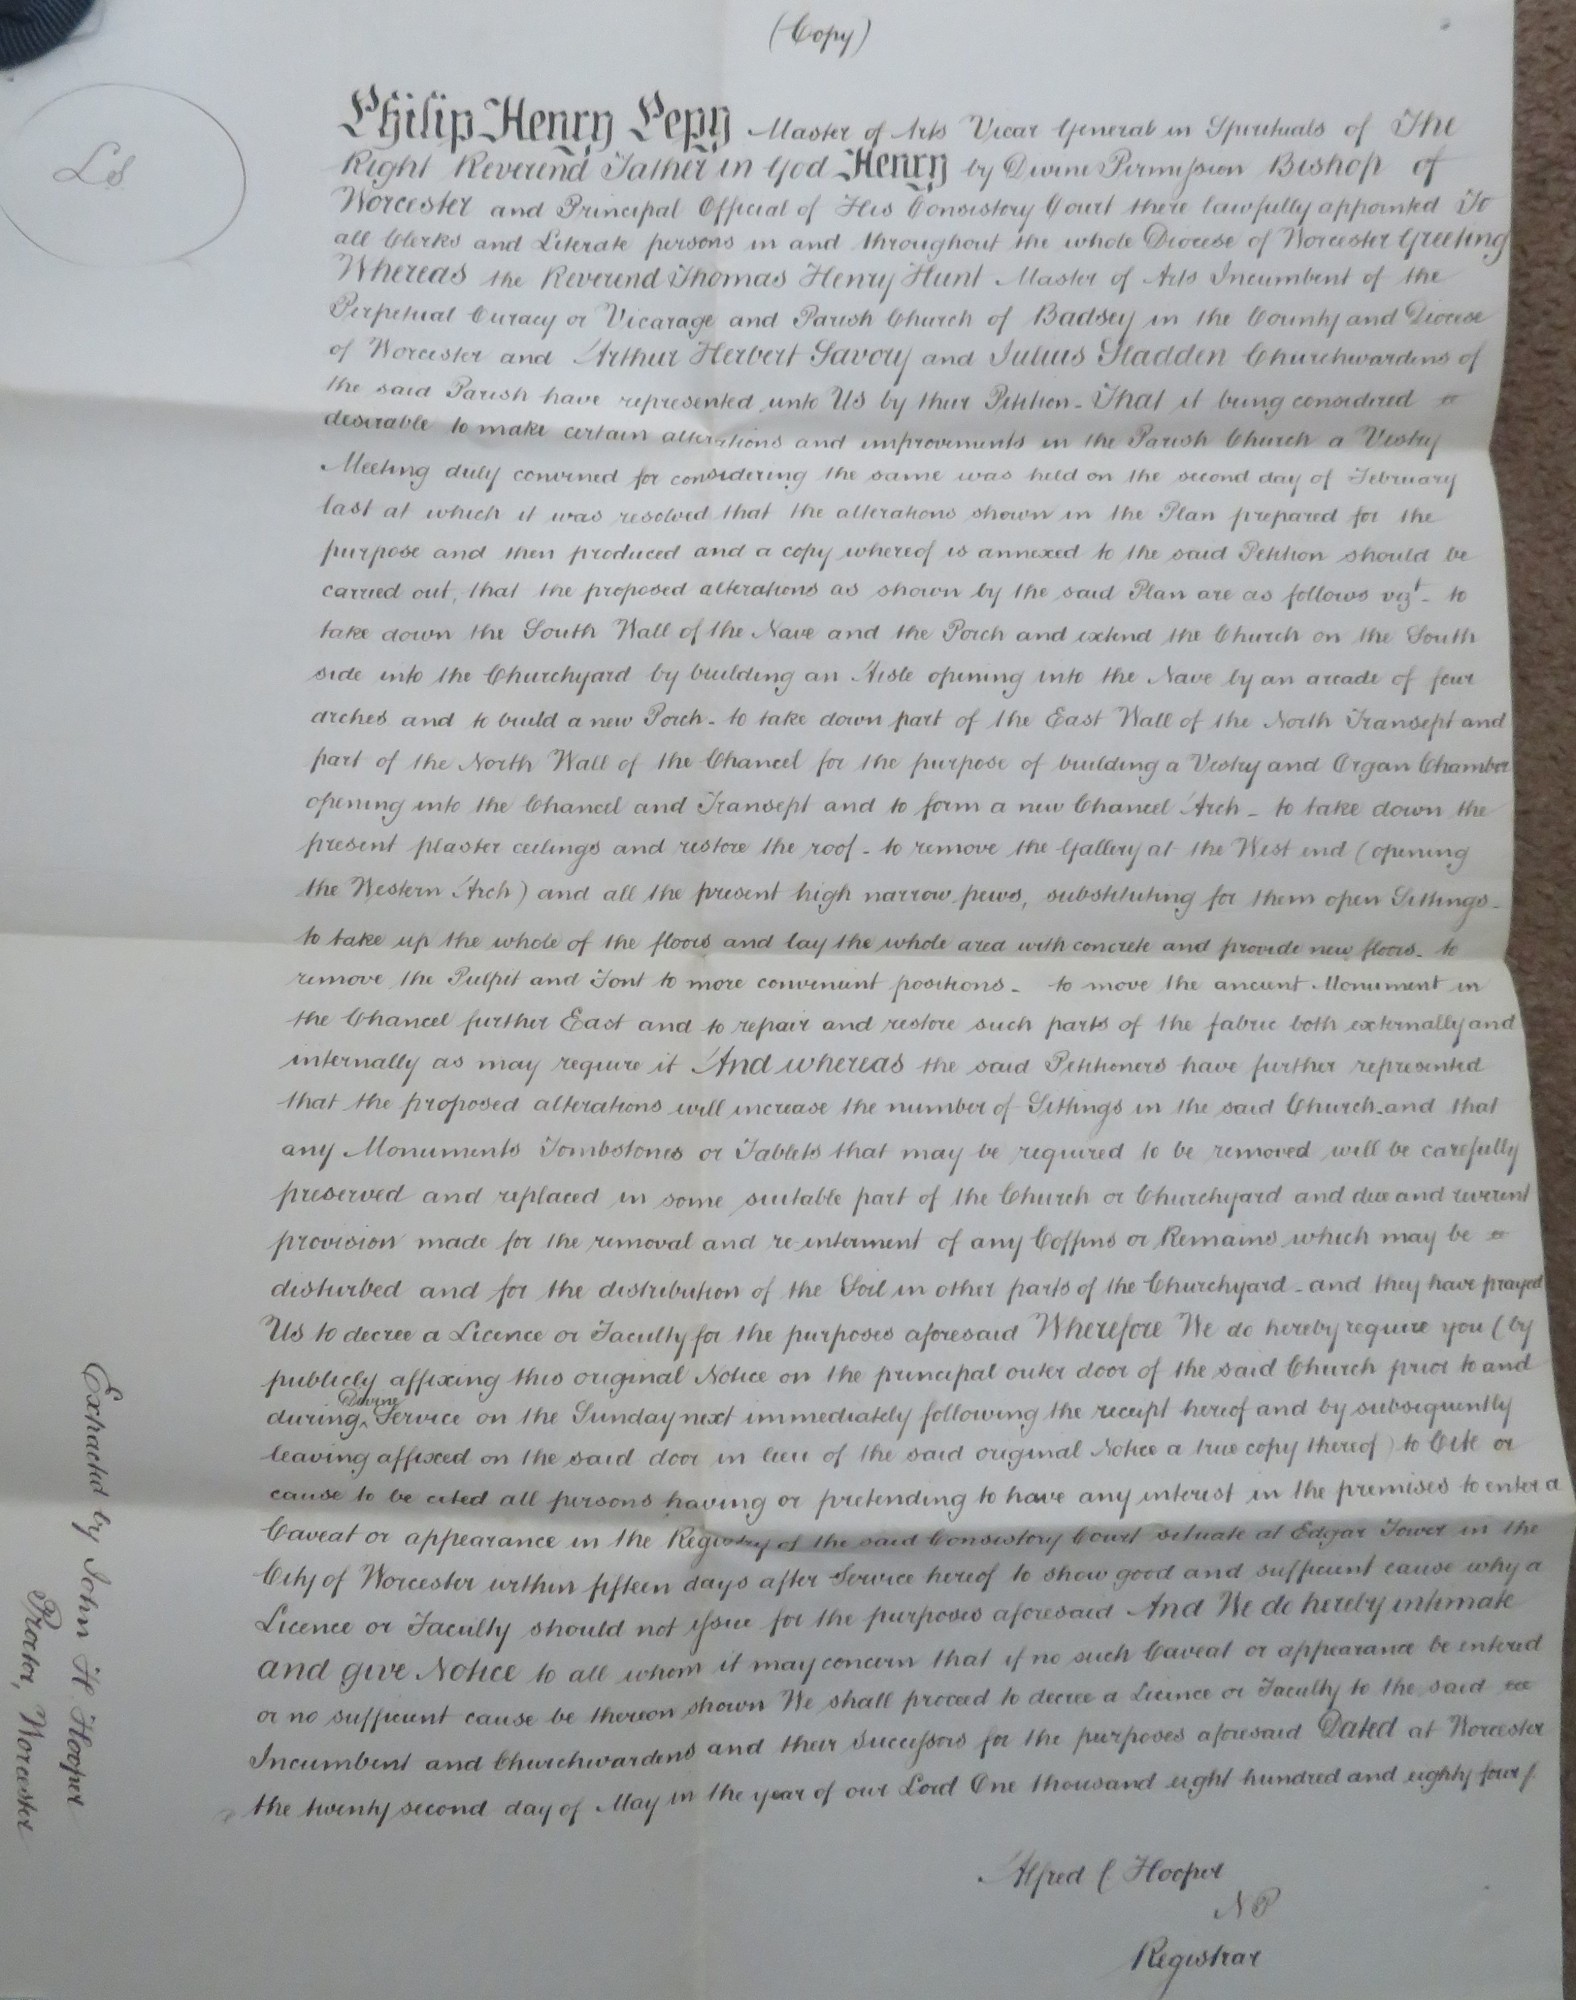 (Copy)
LS
Philip Henry Pepy Master of Arts Vicar General in Spirituals of The
Right Reverend Father in God Henry by Divine Permission Bishop of
Worcester and Principal Official of His Consistory Court there lawfully appointed To
all Clerks and Literate persons in and throughout the whole Diocese of Worcester Greeting
Whereas the Reverend Thomas Henry Hunt Master of Arts Incumbent of the
Perpetual Curacy or Vicarage and Parish Church of Badsey in the County and Diocese
of Worcester and Arthur Herbert Savory and Julius Sladden Churchwardens of
the said Parish have represented unto Us by their Petition - That it being considered
desirable to make certain alterations and improvements in the Parish Church a Vestry
Meeting duly convened for considering the same was held on the second day of February
last at which it was resolved that the alterations shown in the Plan prepared for the
purpose and then produced and a copy whereof is annexed to the said Petition should be
carried out, that the proposed alterations as shown by the said Plan are as follows vizt - to
take down the South Wall of the Nave and the Porch and extend the Church on the South
side into the Churchyard by building an Aisle opening into the Nave by an arcade of four
arches and to build a new Porch - to take down part of the East Wall of the North Transept and
part of the North Wall of the Chancel for the purpose of building a Vestry and Organ Chamber
opening into the Chancel and Transept and to form a new Chancel Arch - to take down the
present plaster ceilings and restore the roof - to remove the Gallery at the West end (opening
the Western Arch) and all the present high narrow pews, substituting for them open Sittings -
to take up the whole of the floors and lay the whole area with concrete and provide new floors - to
remove the Pulpit and Font to more convenient positions - to move the ancient Monument in
the Chancel further East and to repair and restore such parts of the fabric both externally and
internally as may require it And whereas the said Petitioners have further represented
that the proposed alterations will increase the number of Sittings in the said Church - and that
any Monuments Tombstones or Tablets that may be required to be removed will be carefully
preserved and replaced in some suitable part of the Church or Churchyard and due and reverent
provision made for the removal and re-interment of any Coffins or Remains which may be
disturbed and for the distribution of the Soil in other parts of the Churchyard - and they have prayed
Us to decree a Licence or Faculty for the purposes aforesaid Wherefore We do hereby require you (by
publicly affixing this original Notice on the principal outer door of the said Church prior to and
during Divine Service on the Sunday next immediately following the receipt hereof and by subsequently
leaving affixed on the said door in lieu of the said original Notice a true copy thereof) to Cite or
cause to be cited all persons having or pretending to have any interest in the premises to enter a
Caveat or appearance in the Registry of the said Consistory Court situate at Edgar Tower in the
City of Worcester within fifteen days after Service hereof to show good and sufficient cause why a
Licence or Faculty should not issue for the purposes aforesaid And We do hereby intimate
and give Notice to all whom it may concern that if no such Caveat or appearance be entered
or no sufficient cause be thereon shown We shall proceed to decree a Licence or Faculty to the said
Incumbent and Churchwardens and their Successors for the purposes aforesaid Dated at Worcester
the twenty second day of May in the year of our Lord One thousand eight hundred and eighty four
Alfred C Hooper
N P
Registrar
Extracted by John H. Hooper
Proctor, Worcester